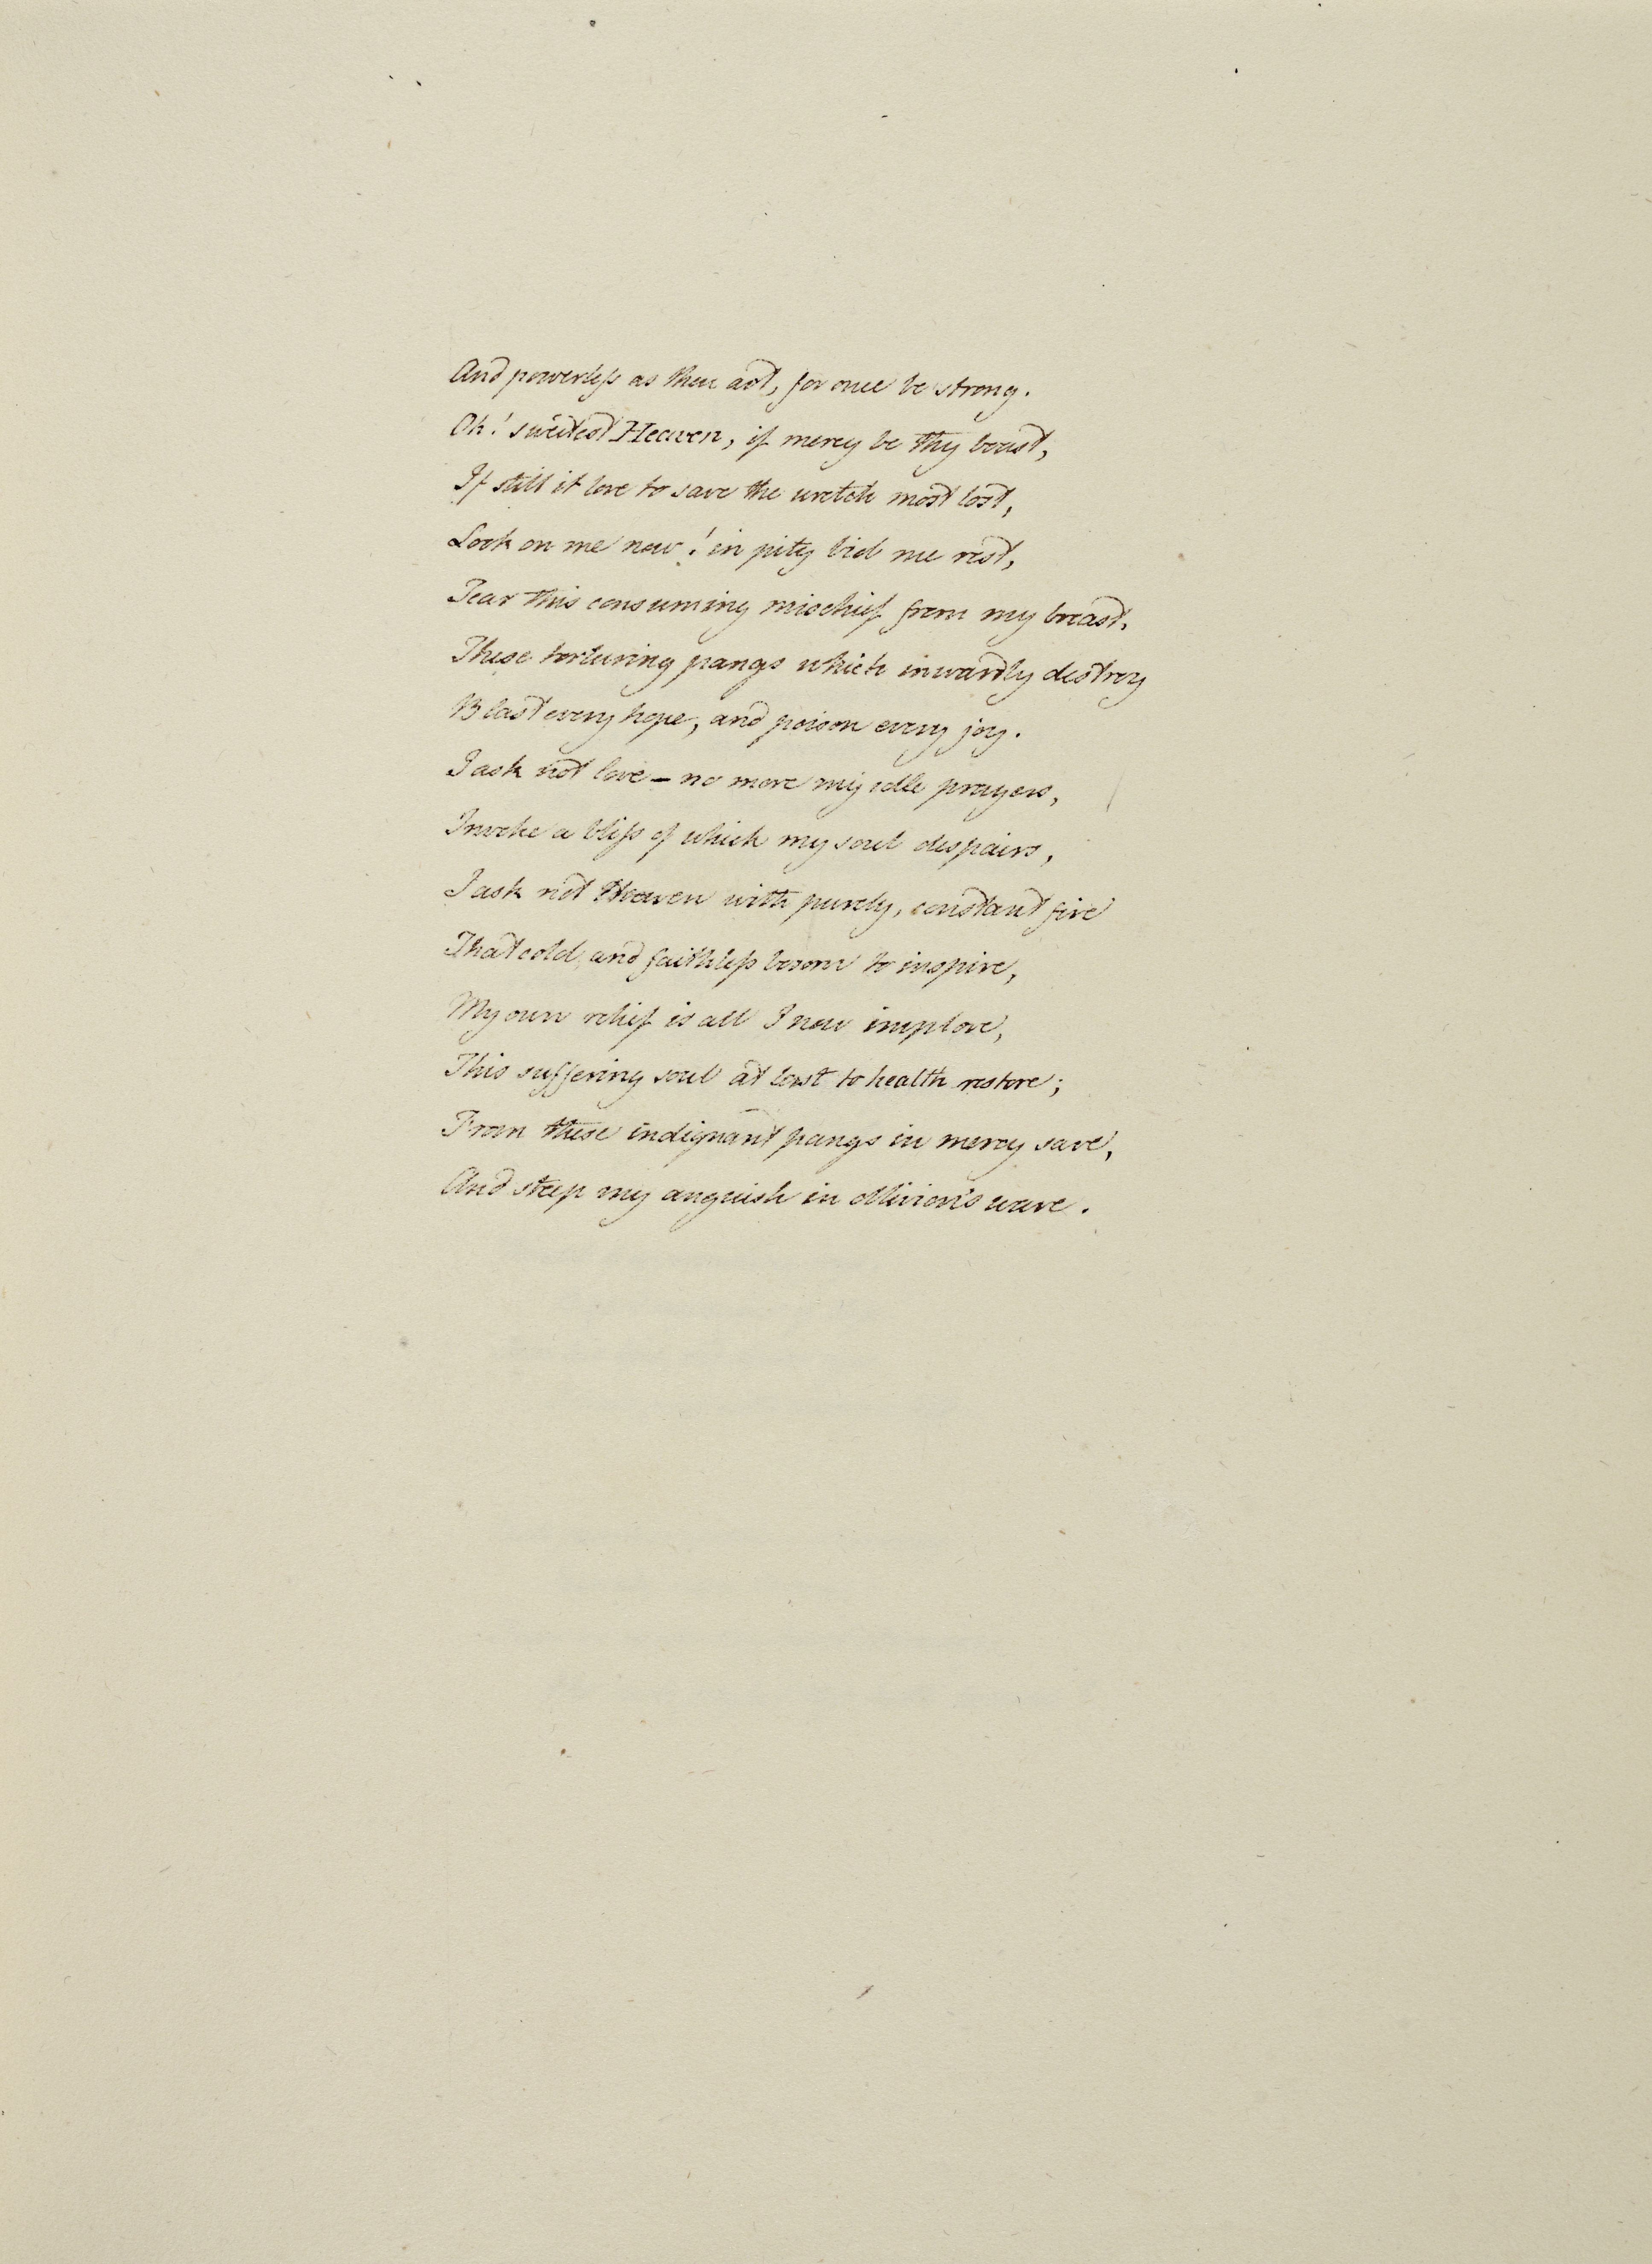 And powerless as thou art, for once be strong.
Oh! sweetest Heaven, if mercy be thy boast,
If still it love to save the wretch most lost,
Look on me now! in pity bid me rest,
Tear this consuming mischief from my breast,
These torturing pangs which inwardly destroy
Blast every hope, and poison every joy.
I ask not love – no more my idle prayers,
Invoke a bliss of which my soul despairs,
I ask not Heaven with purely, constant fire
That cold, and faithless bosom to inspire,
My own relief is all I now implore,
This suffering soul at last to health restore;
From these indignant pangs in mercy save,
And steep my anguish in oblivion's wave.